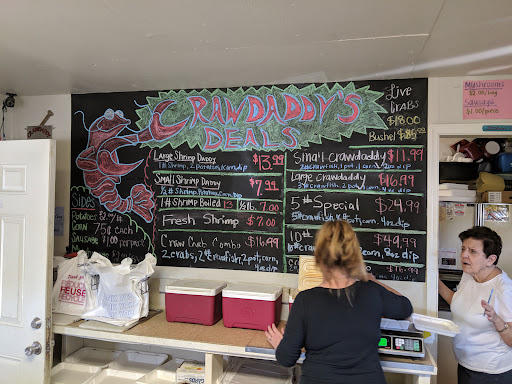 CRAWDADDY'S
DEALS
Live
CRABS
$18.00
Bushel
Large Shrimp Daddy $13.99
1# Shrimp, 2 Potatoes, Corn, Dip
Small Shrimp Daddy $7.99
½# Shrimp, Potatoes, Corn, Dip
1# Shrimp Boiled 13 ½lb. 7.00
Fresh Shrimp $7.00
Craw Crab Combo $16.99
2 crabs, 2# crawfish, 2 pot, corn, 4oz dip
Small Crawdaddy $11.99
Large Crawdaddy $16.99
3# crawfish, 2 pot, 1 corn, 4oz dip
5# Special $24.99
5# crawfish, 4 pot, corn, 4oz dip
10# $49.99
8oz dip
$16.99
4oz dip
Sides
Potatoes 2/$1
Corn 75¢
each
Sausage
$1.00 per pack
Mushrooms
$2.00/bag
Sausage
$1.00/piece
REUSE
RECYCLE